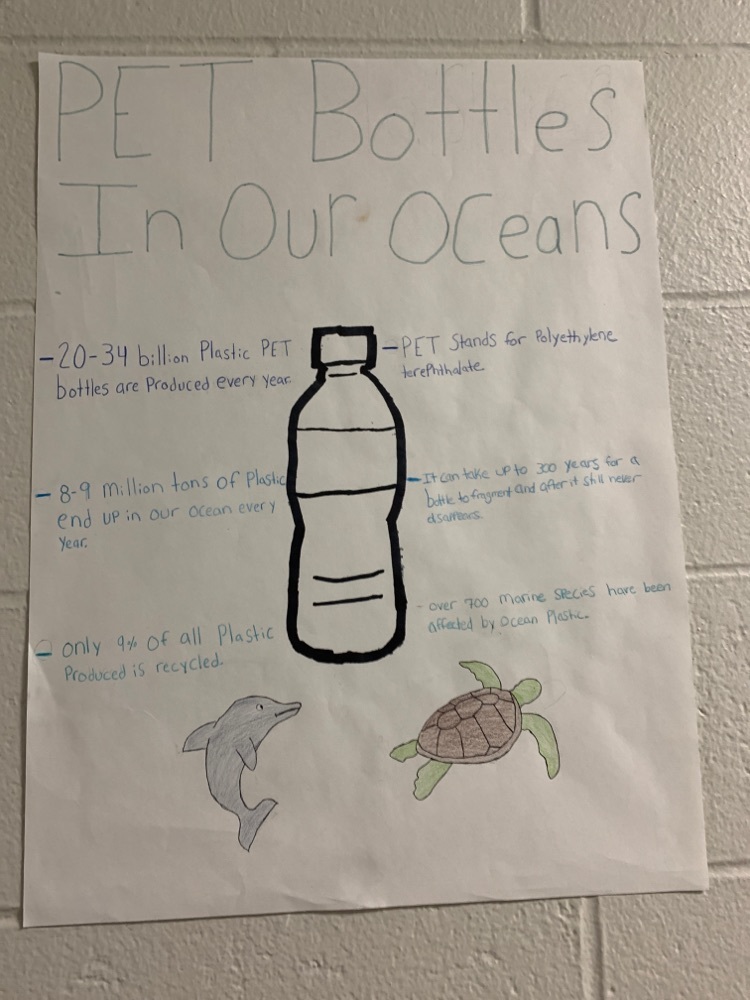 PET Bottles
In Our Oceans
-20-34 billion Plastic PET
bottles are Produced every year.
- 8-9 million tons of Plastic
end up in our ocean every
year.
- only 9% of all Plastic
Produced is recycled.
-PET Stands for Polyethylene
terephthalate.
-It can take up to 300 years for a
bottle to fragment and after it still never
disappears.
- over 700 marine species have been
affected by Ocean Plastic.